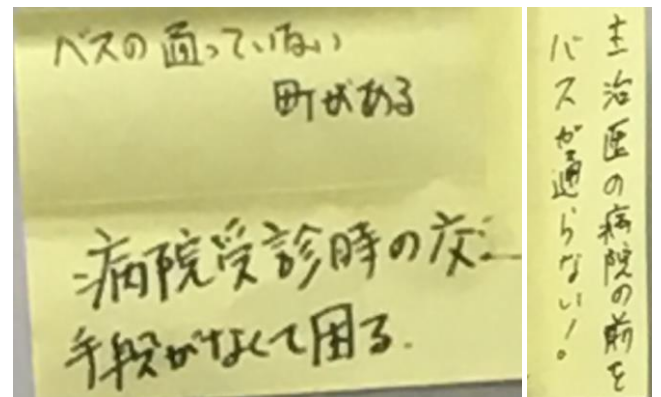 バスの通っていない
町がある
病院受診時の交
手段がなくて困る.
主治医の病院の前を
バスが通らない!。